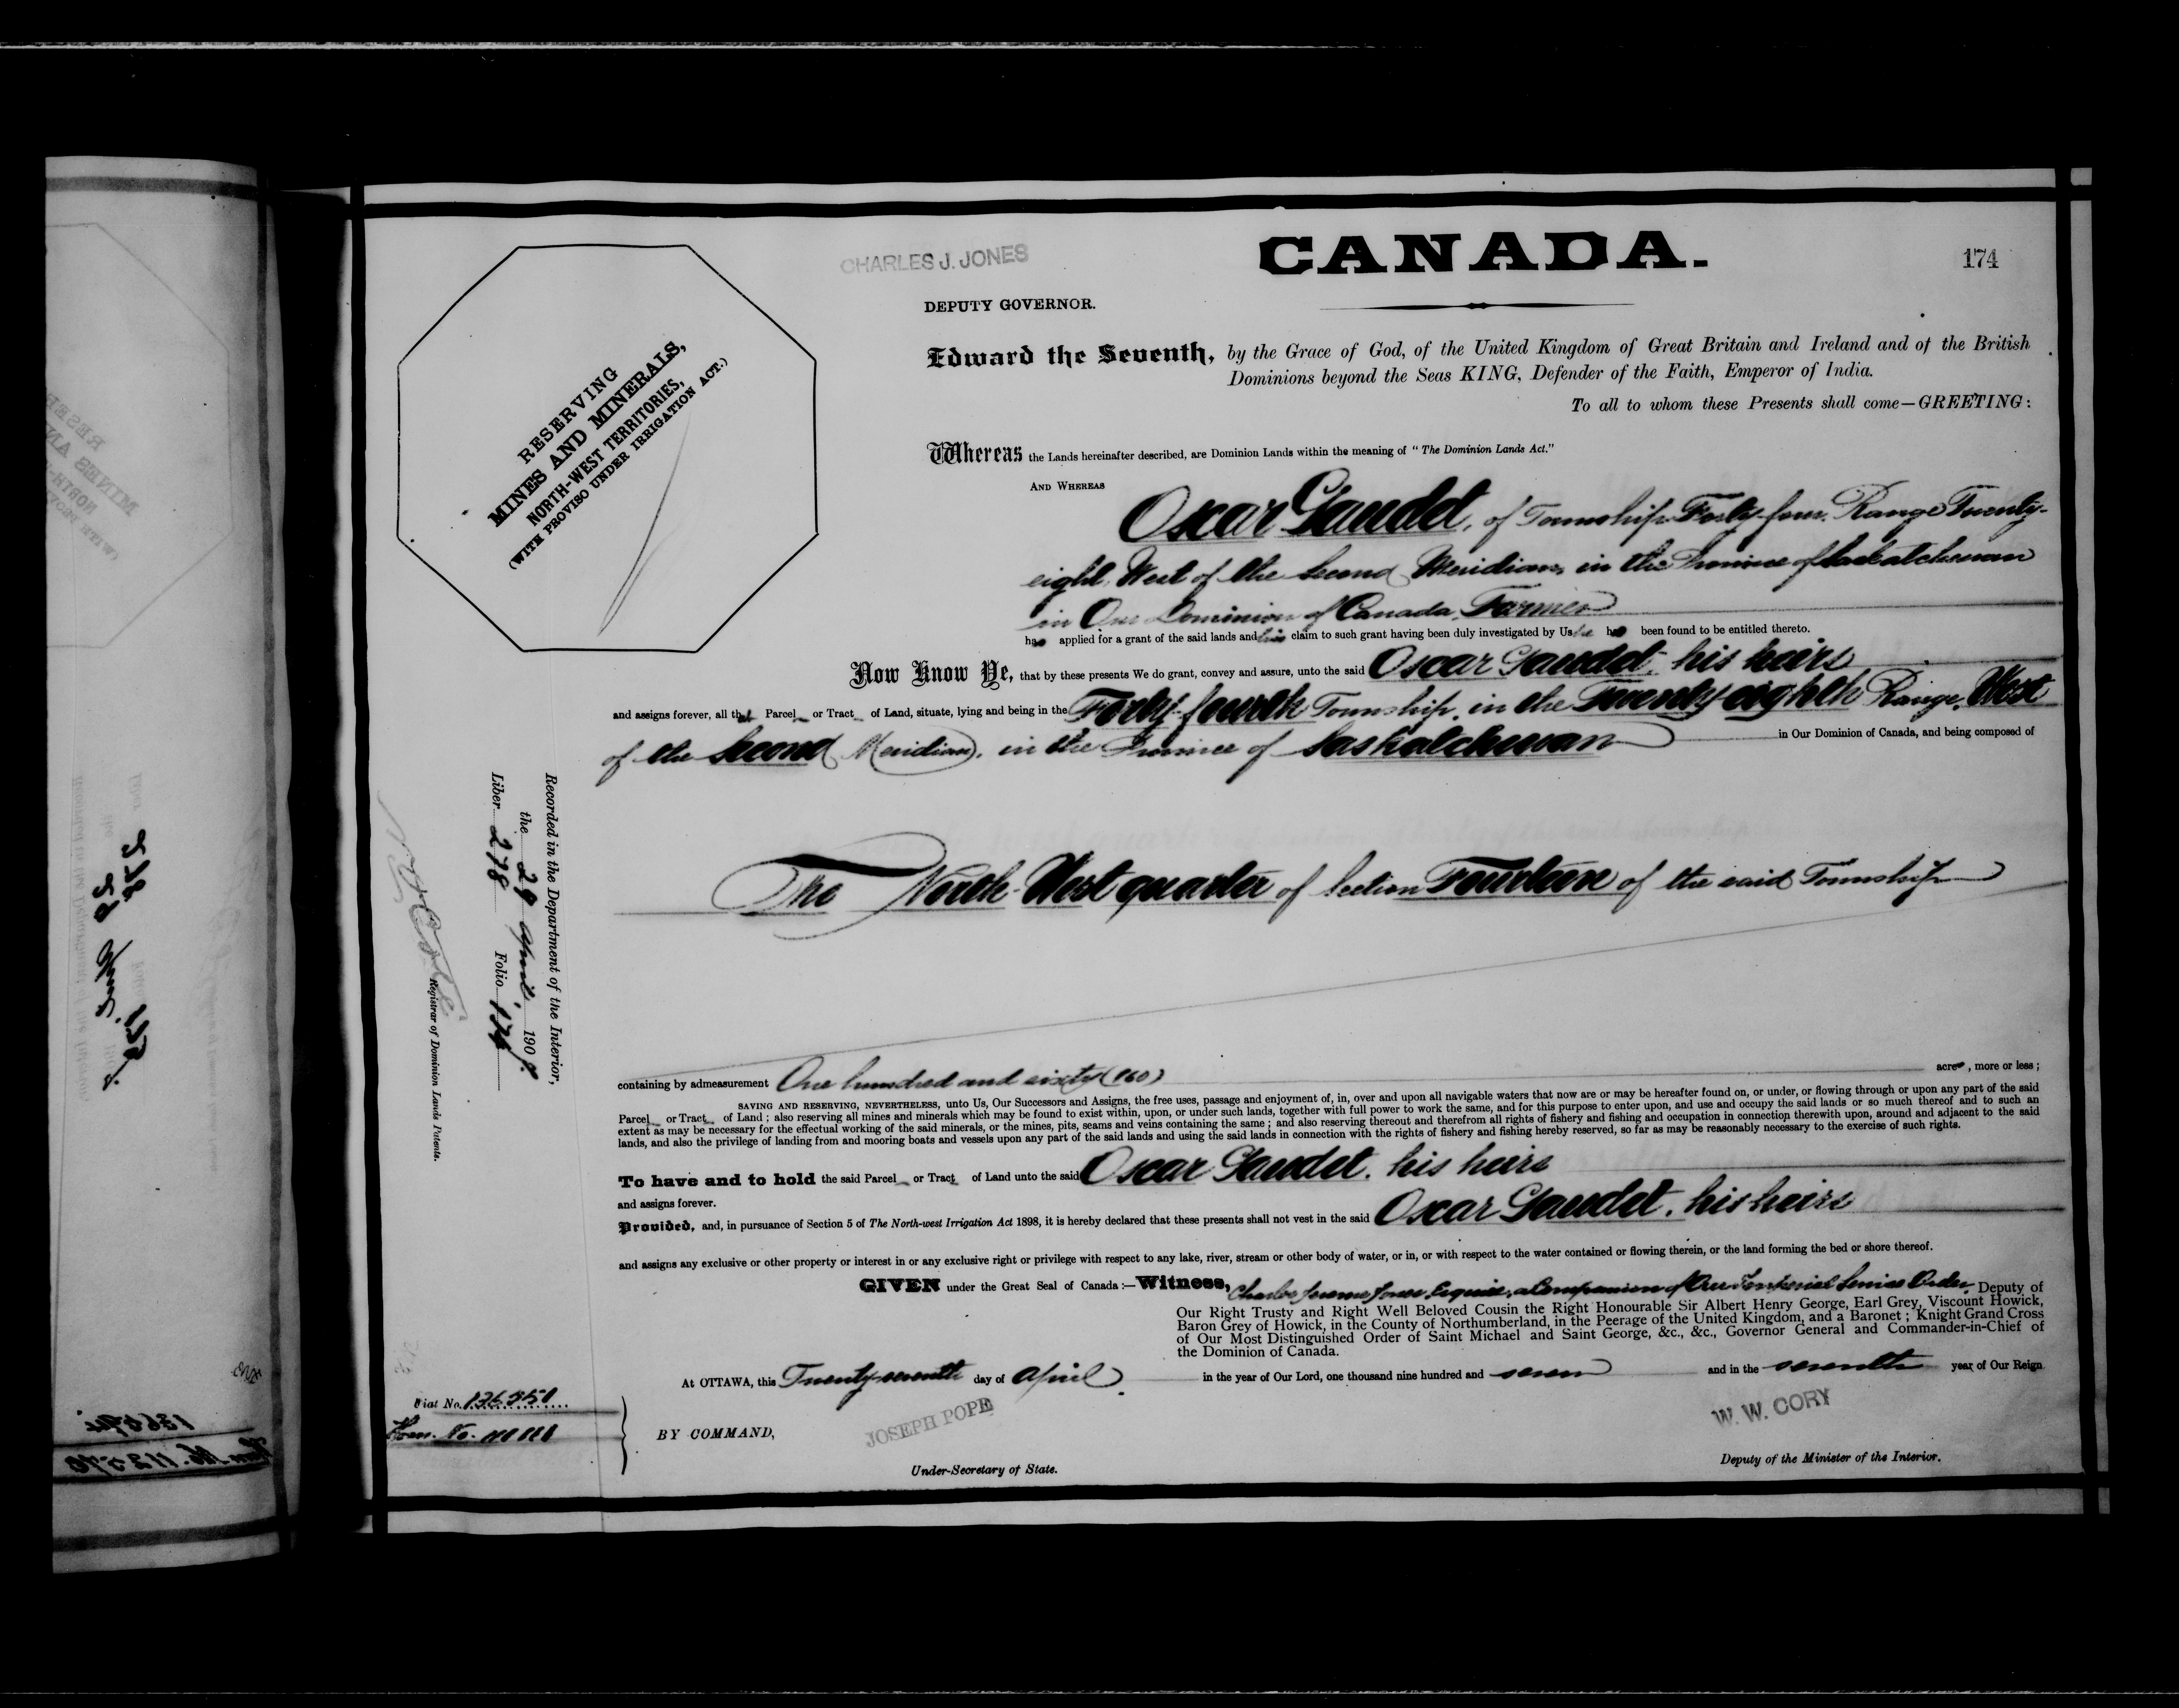 CHARLES J. JONES
CANADA.
174
DEPUTY GOVERNOR.
Edward the Seventh, by the Grace of God, of the United Kingdom of Great Britain and Ireland and of the British
Dominions beyond the Seas KING, Defender of the Faith, Emperor of India.
To all to whom these Presents shall come—GREETING:
RESERVING
MINES AND MINERALS,
NORTH-WEST TERRITORIES,
(WITH PROVISO UNDER IRRIGATION ACT.)
Whereas the Lands hereinafter described, are Dominion Lands within the meaning of "The Dominion Lands Act."
AND WHEREAS
Oscar Gaudet, of Township Forty-four, Range Twenty-
eight, West of the Second Meridian, in the Province of Saskatchewan
in Our Dominion of Canada, Farmer
has applied for a grant of the said lands and his claim to such grant having been duly investigated by Us he has been found to be entitled thereto.
Now Know Ye, that by these presents We do grant, convey and assure, unto the said Oscar Gaudet, his heirs
and assigns forever, all that Parcel or Tract of Land, situate, lying and being in the Forty-fourth Township, in the Twenty-eighth Range, West
of the Second Meridian, in the Province of Saskatchewan in Our Dominion of Canada, and being composed of
The North-West quarter of Section Fourteen of the said Township
Recorded in the Department of the Interior,
the 29 April 190
Liber 278 Folio 174
Registrar of Dominion Lands Patents.
containing by admeasurement One hundred and sixty (160) acres, more or less;
SAVING AND RESERVING, NEVERTHELESS, unto Us, Our Successors and Assigns, the free uses, passage and enjoyment of, in, over and upon all navigable waters that now are or may be hereafter found on, or under, or flowing through or upon any part of the said
Parcel or Tract of Land; also reserving all mines and minerals which may be found to exist within, upon, or under such lands, together with full power to work the same, and for this purpose to enter upon, and use and occupy the said lands or so much thereof and to such an
extent as may be necessary for the effectual working of the said minerals, or the mines, pits, seams and veins containing the same; and also reserving thereout and therefrom all rights of fishery and fishing and occupation in connection therewith upon, around and adjacent to the said
lands, and also the privilege of landing from and mooring boats and vessels upon any part of the said lands and using the said lands in connection with the rights of fishery and fishing hereby reserved, so far as may be reasonably necessary to the exercise of such rights.
To have and to hold the said Parcel or Tract of Land unto the said Oscar Gaudet, his heirs
and assigns forever.
Provided, and, in pursuance of Section 5 of The North-west Irrigation Act 1898, it is hereby declared that these presents shall not vest in the said Oscar Gaudet, his heirs
and assigns any exclusive or other property or interest in or any exclusive right or privilege with respect to any lake, river, stream or other body of water, or in, or with respect to the water contained or flowing therein, or the land forming the bed or shore thereof.
GIVEN under the Great Seal of Canada:—Witness, Charles Jerome Jones, Esquire, a Companion of Our Imperial Service Order, Deputy of
Our Right Trusty and Right Well Beloved Cousin the Right Honourable Sir Albert Henry George, Earl Grey, Viscount Howick,
Baron Grey of Howick, in the County of Northumberland, in the Peerage of the United Kingdom, and a Baronet; Knight Grand Cross
of Our Most Distinguished Order of Saint Michael and Saint George, &c., &c., Governor General and Commander-in-Chief of
the Dominion of Canada.
At OTTAWA, this Twenty-seventh day of April in the year of Our Lord, one thousand nine hundred and seven and in the seventh year of Our Reign
Fiat No.
BY COMMAND,
JOSEPH POPE
Under-Secretary of State.
W. W. CORY
Deputy of the Minister of the Interior.